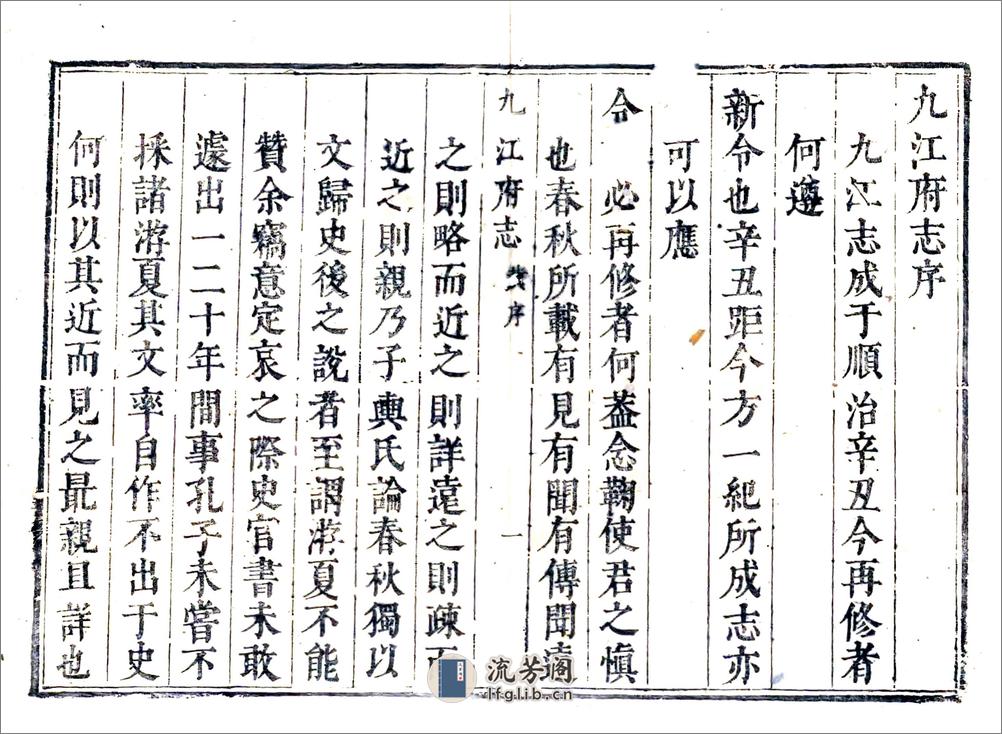 九江府志序
九江志成于順治辛丑今再修者
何遵
新令也辛丑距今方一紀所成志亦
可以應
令　必再修者何葢念鞠使君之慎
也春秋所載有見有聞有傳聞遠
九江府志　序　一
之則略而近之則詳遠之則疎而
近之則親乃子輿氏論春秋獨以
文歸史後之說者至謂游夏不能
贊余竊意定哀之際史官書未敢
遽出一二十年間事孔子未嘗不
採諸游夏其文率自作不出于史
何則以其近而見之最親且詳也
流芳阁
lfglib.cn